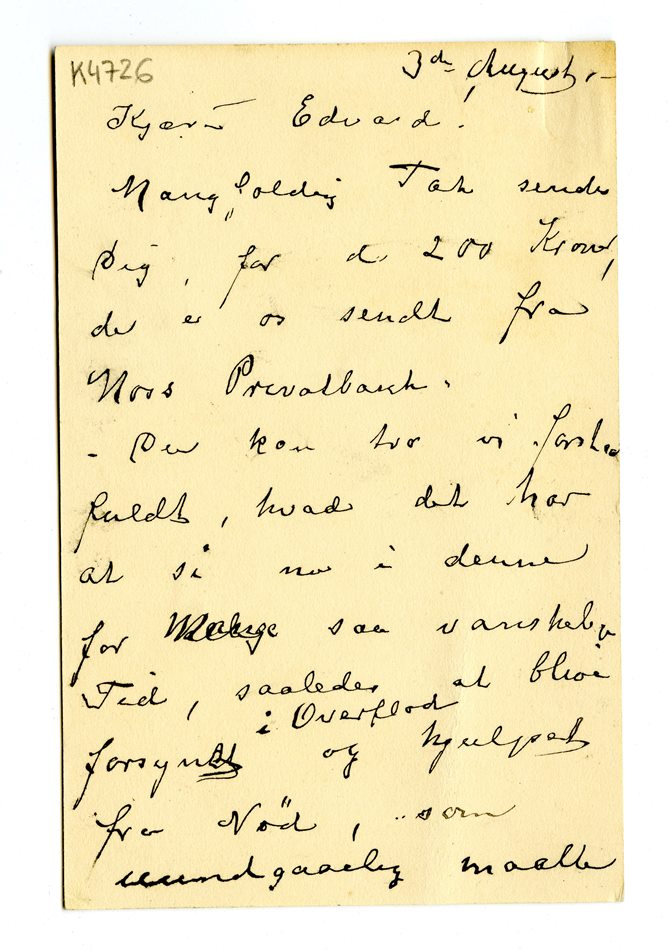 K4726
3die August. –
Kjære Edvard!
Mangfoldig Tak sendes
Dig, for de 200 Kroner,
de er os sendt fra
Moss Privatbank.
– Du kan tro vi forstaa
fuldt, hvad det har
at si nu i denne
for Mange saa vanskelige
Tid, saaledes at blive
i Overflod
forsynet og hjulpet
fra Nød, som
uundgaaelig maatte